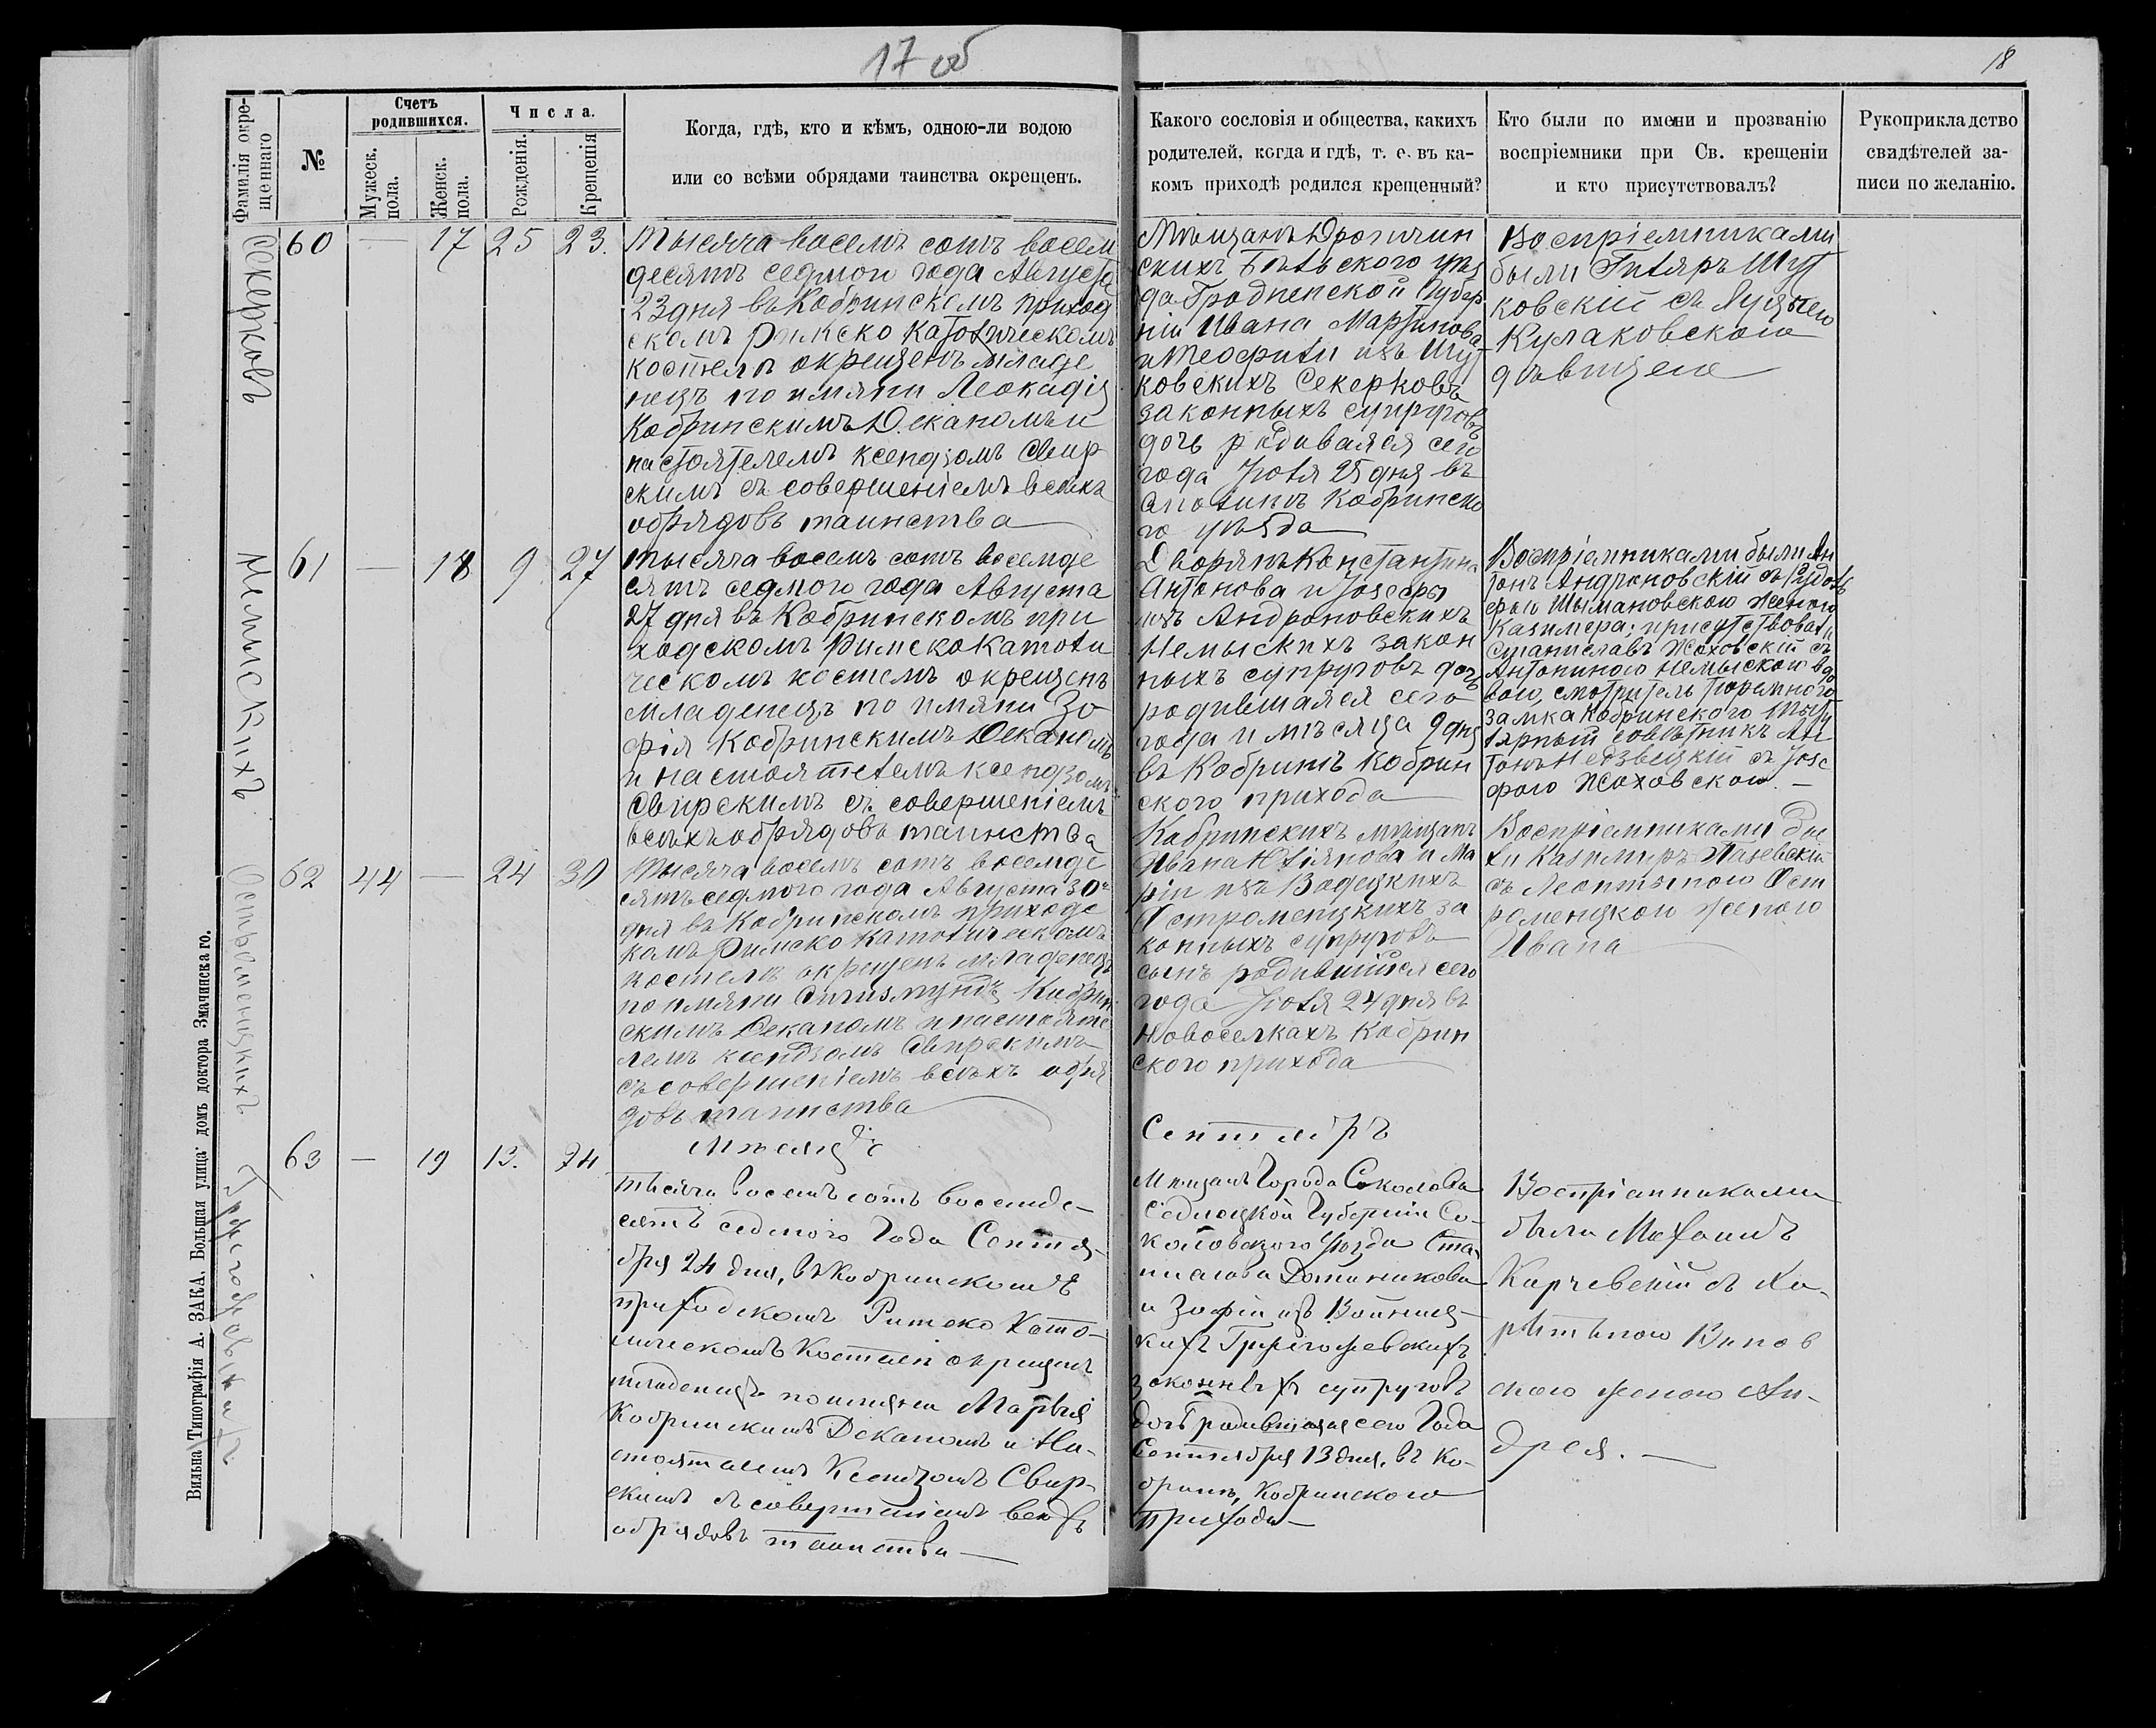 17 об
18
Фамилія окре-
щеннаго
№
Счетъ
родившихся.
Мужеск.
пола.
Женск.
пола.
Числа.
Рожденія.
Крещенія
Когда, гдѣ, кто и кѣмъ, одною-ли водою
или со всѣми обрядами таинства окрещенъ.
Какого сословія и общества, какихъ
родителей, когда и гдѣ, т. е. въ ка-
комъ приходѣ родился крещенный?
Кто были по имени и прозванію
воспріемники при Св. крещеніи
и кто присутствовалъ?
Рукоприкладство
свидѣтелей за-
писи по желанію.
Секерковъ
60 — 17 25 23.
Тысяча восемъ сотъ восем
десятъ седмого года Августа
23 дня въ Кобринскомъ приход
скомъ римско католическомъ
костелѣ окрещенъ младе
нецъ по имяни Леокадія
Кобринскимъ Деканомъ и
настоятелемъ ксендзомъ Свир
скимъ съ совершеніемъ всѣхъ
обрядовъ таинства
Мѣщанъ Дрогичин
скихъ Бѣльского уѣз
да Гродненской Губер
ніи Ивана Мартинова
и Теофили изъ Шут
ковскихъ Секерковъ
законныхъ супруговъ
дочь родиваяся сего
года Іюля 25 дня въ
Кобринско
го уѣзда
Воспріемниками
были Гиляръ Шут
ковскій съ Луцыею
Кулаковскою
дѣвицею
Немыскихъ
61 — 18 9 27
Тысяча восемъ сотъ восемде
сятъ седмого года Августа
27 дня въ Кобринскомъ при
ходскомъ римско католи
ческомъ костелѣ окрещенъ
младенецъ по имяни Зо
фія Кобринскимъ Деканомъ
и настоятелемъ ксендзомъ
Свирскимъ съ совершеніемъ
всѣхъ обрядовъ таинства
Дворянъ Константина
Антонова и Іозефы
изъ Андроновскихъ
Немыскихъ закон
ныхъ супруговъ дочь
родившаяся сего
года и мѣсяца 9 дня
въ Кобринѣ Кобрин
ского прихода
Воспріемниками были Ан
тонъ Андроновскій съ
фою Шымановскою женою
Казимера; присутствовали
Станиславъ Жоховскій съ
Антониною Немыскою вдо
вою, смотритель тюремного
замка Кобринского титу
лярный совѣтникъ Ан
тонъ Недзвецкій съ Іозе
фою Жоховскою. —
Остроменцкихъ
62 44 — 24 30
Тысяча восемъ сотъ восемде
сятъ седмого года Августа 30
дня въ Кобринскомъ приходс
комъ Римско Католическомъ
костелѣ окрещенъ младенецъ
по имяни Сигизмундъ Кобрин
скимъ Деканомъ и настояте
лемъ ксендзомъ Свирскимъ
съ совершеніемъ всѣхъ обря
довъ таинства
Кобринскихъ мѣщанъ
Ивана Юліянова и Ма
ріи изъ Водецкихъ
Остроменцкихъ за
конныхъ супруговъ
сынъ родившійся сего
года Іюля 24 дня въ
Новоселкахъ Кобрин
ского прихода
Воспріемниками бы
ли Казимиръ
съ Леонтыною Ост
роменцкою женою
Ивана
Мѣсяцъ
Сентябръ
63 — 19 13. 24
Тысяча восемъ сотъ восемде-
сятъ седмого Года Сентя-
бря 24 дня, въ Кобринскомъ
приходскомъ Римско Като-
лическомъ Костелѣ окрещенъ
младенецъ по имяни Марія
Кобринскимъ Деканомъ и На-
стоятелемъ Ксендзомъ Свир-
скимъ съ совершеніемъ всѣхъ
обрядовъ таинства —
Мѣщанъ Города Соколова
Сѣдлецкой Губерніи Со-
коловского Уѣзда Ста-
нислава Доминикова
и Зофіи изъ Войниц-
кихъ Григоревскихъ
законныхъ супруговъ
дочь родившаяся сего Года
Сентября 13 дня, въ Ко-
бринѣ, Кобринского
прихода —
Воспріемниками
были Михаилъ
Карчевскій съ Ха-
ритыною
скою женою Ан-
дрея. —
Вильна Типографія А. ЗАКА, Большая улица домъ доктора Змачинскаго.